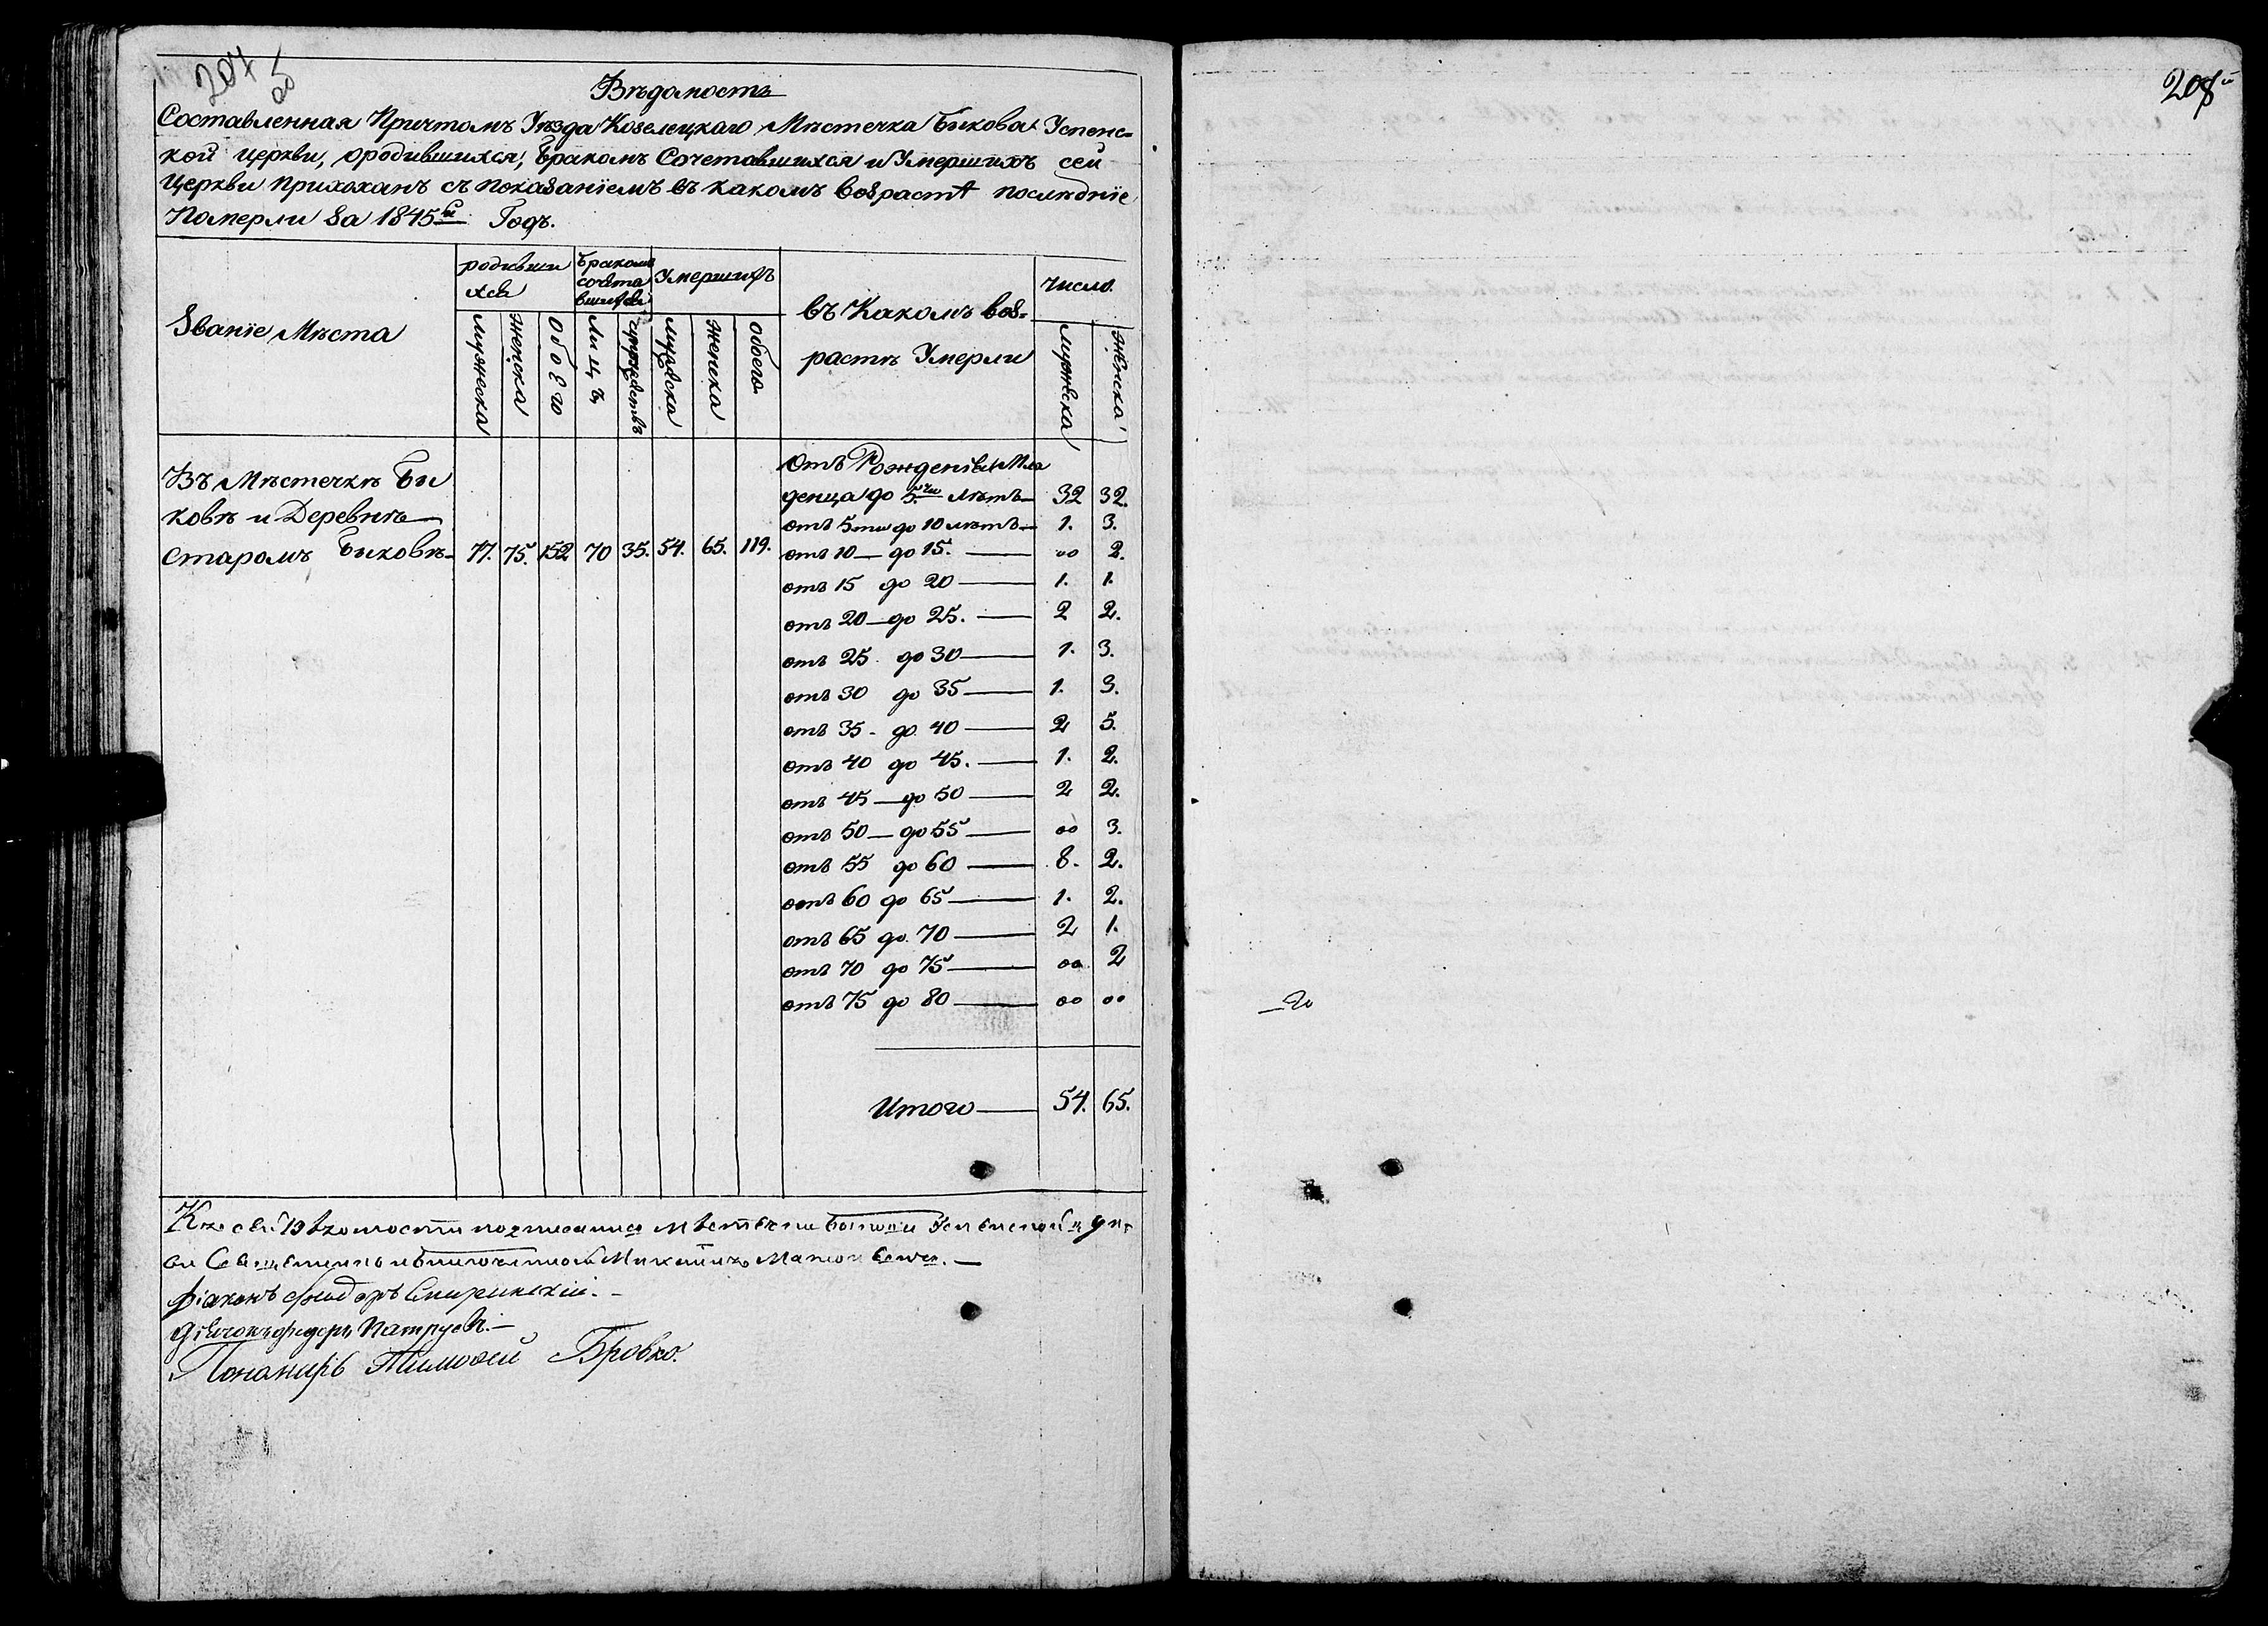 204
об
Вѣдомость
Составленная Причтомъ Уѣзда Козелецкаго Мѣстечка Быкова Успенс-
кой церкви, ородившихся, бракомъ Сочетавшихся и Умершихъ сей
Церкви прихожанъ съ показаніемъ въ какомъ возрастѣ послѣдніе
Померли За 1845й Годъ.
Званіе Мѣста
родивши
хся
бракомъ
сочѣта
вшихся
Умершихъ
въ Какомъ воз-
растѣ Умерли
Число.
мужеска
женска
Обоего
Лицъ
супружествъ
мужеска
женска
Обоего
мужеска
женска
Въ Мѣстечкѣ Бы
ковѣ и Деревнѣ
Старомъ Быковѣ 77. 75. 152 70 35. 54. 65. 119.
Отъ Рожденія Мла
денца до 5ти лѣтъ 32 32.
отъ 5ти до 10 лѣтъ 1. 3.
отъ 10 — до 15. — оо 2.
отъ 15 до 20 — 1. 1.
отъ 20 — до 25. — 2 2.
отъ 25 до 30 — 1. 3.
отъ 30 до 35 — 1. 3.
отъ 35 - до 40 — 2 5.
отъ 40 до 45. — 1. 2.
отъ 45 — до 50 — 2 2.
отъ 50 — до 55 — оо 3.
отъ 55 до 60 — 8. 2.
отъ 60 до 65 — 1. 2.
отъ 65 до 70 — 2 1.
отъ 70 до 75 — оо 2
отъ 75 до 80 — оо оо
Итого — 54. 65.
Къ сей Вѣдомости подписался Мѣстечка Успенской церк
ви Священникъ
Діаконъ Спиринскій.
Дьячокъ Федоръ Патруев.
Пономарь Тимофей Бровко.
205